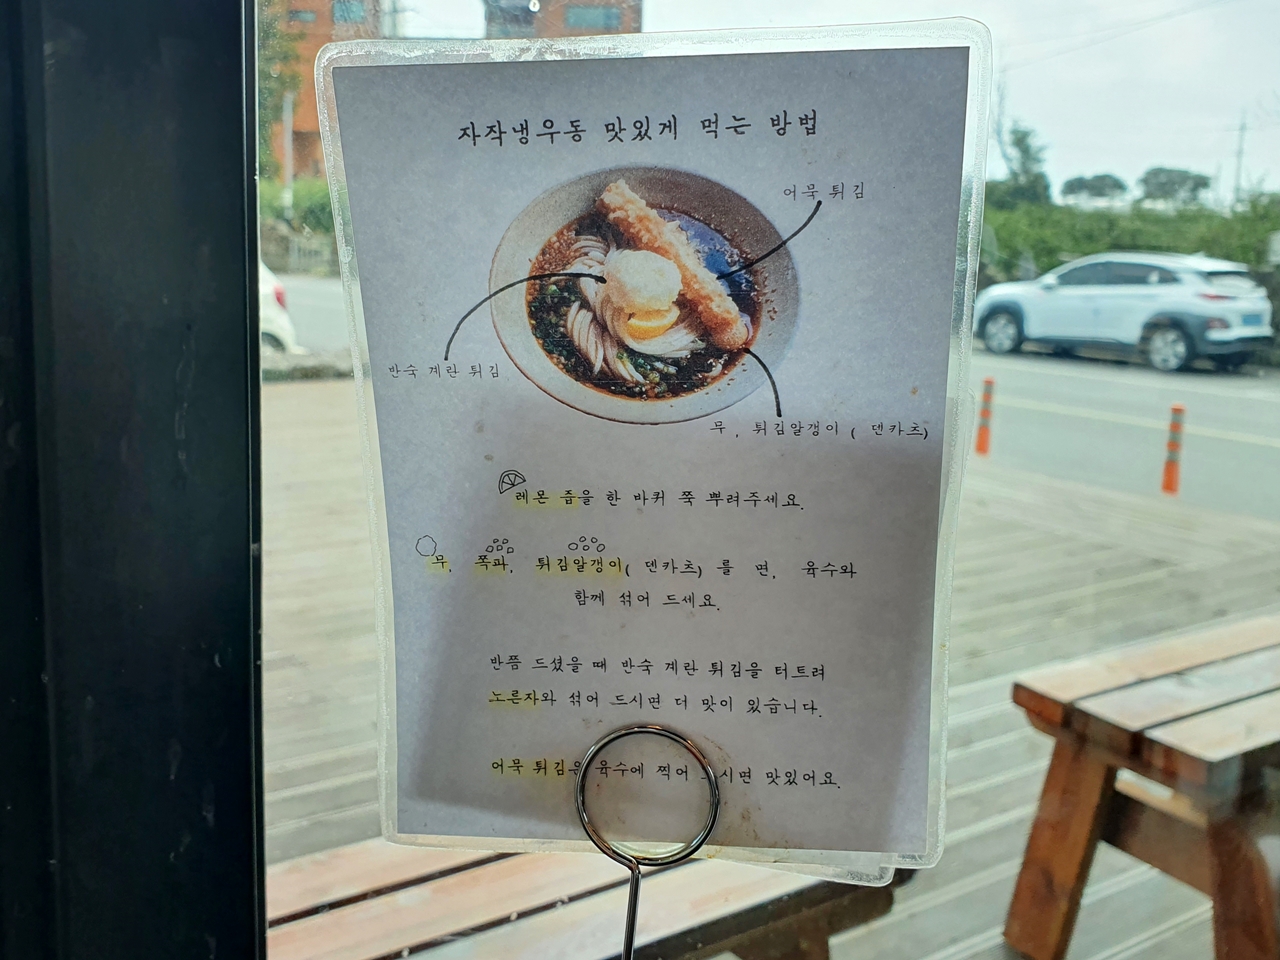 자작냉우동 맛있게 먹는 방법
어묵 튀김
반숙 계란 튀김
무, 튀김알갱이 ( 덴카츠)
레몬 즙을 한 바퀴 쭉 뿌려주세요.
무, 쪽파, 튀김알갱이( 덴카츠) 를 면, 육수와
함께 섞어 드세요.
반쯤 드셨을 때 반숙 계란 튀김을 터트려
노른자와 섞어 드시면 더 맛이 있습니다.
어묵 튀김은 육수에 찍어 드시면 맛있어요.